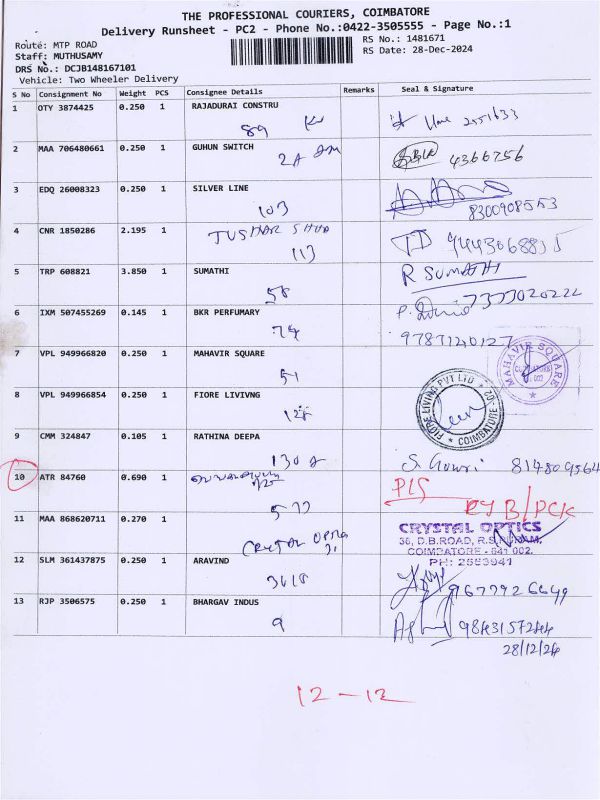 THE PROFESSIONAL COURIERS, COIMBATORE
Delivery Runsheet - PC2 - Phone No.:0422-3505555 - Page No.:1
Route: MTP ROAD
RS No.: 1481671
Staff: MUTHUSAMY
RS Date: 28-Dec-2024
DRS No.: DCJB148167101
Vehicle: Two Wheeler Delivery
S No Consignment No Weight PCS Consignee Details Remarks Seal & Signature
1 OTY 3874425 0.250 1 RAJADURAI CONSTRU
89
2551633
2 MAA 706480661 0.250 1 GUHUN SWITCH
2A
4366756
3 EDQ 26008323 0.250 1 SILVER LINE
103
8300908553
4 CNR 1850286 2.195 1 TUSHAR
113
5 TRP 608821 3.850 1 SUMATHI
R SUMATHI
58
7373020222
6 IXM 507455269 0.145 1 BKR PERFUMARY
74
9787120127
7 VPL 949966820 0.250 1 MAHAVIR SQUARE
51
MAHAVIR SQUARE
8 VPL 949966854 0.250 1 FIORE LIVIVNG
FIORE LIVING PVT LTD
COIMBATORE
9 CMM 324847 0.105 1 RATHINA DEEPA
130
S. Gowri 814809564
10 ATR 84760 0.690 1
577
11 MAA 868620711 0.270 1
CRYSTAL OPTICS
36, D.B.ROAD, R.S.PURAM,
COIMBATORE - 641 002.
PH: 2553941
12 SLM 361437875 0.250 1 ARAVIND
3618
9677926649
13 RJP 3506575 0.250 1 BHARGAV INDUS
9
9843157244
28/12/24
12-12